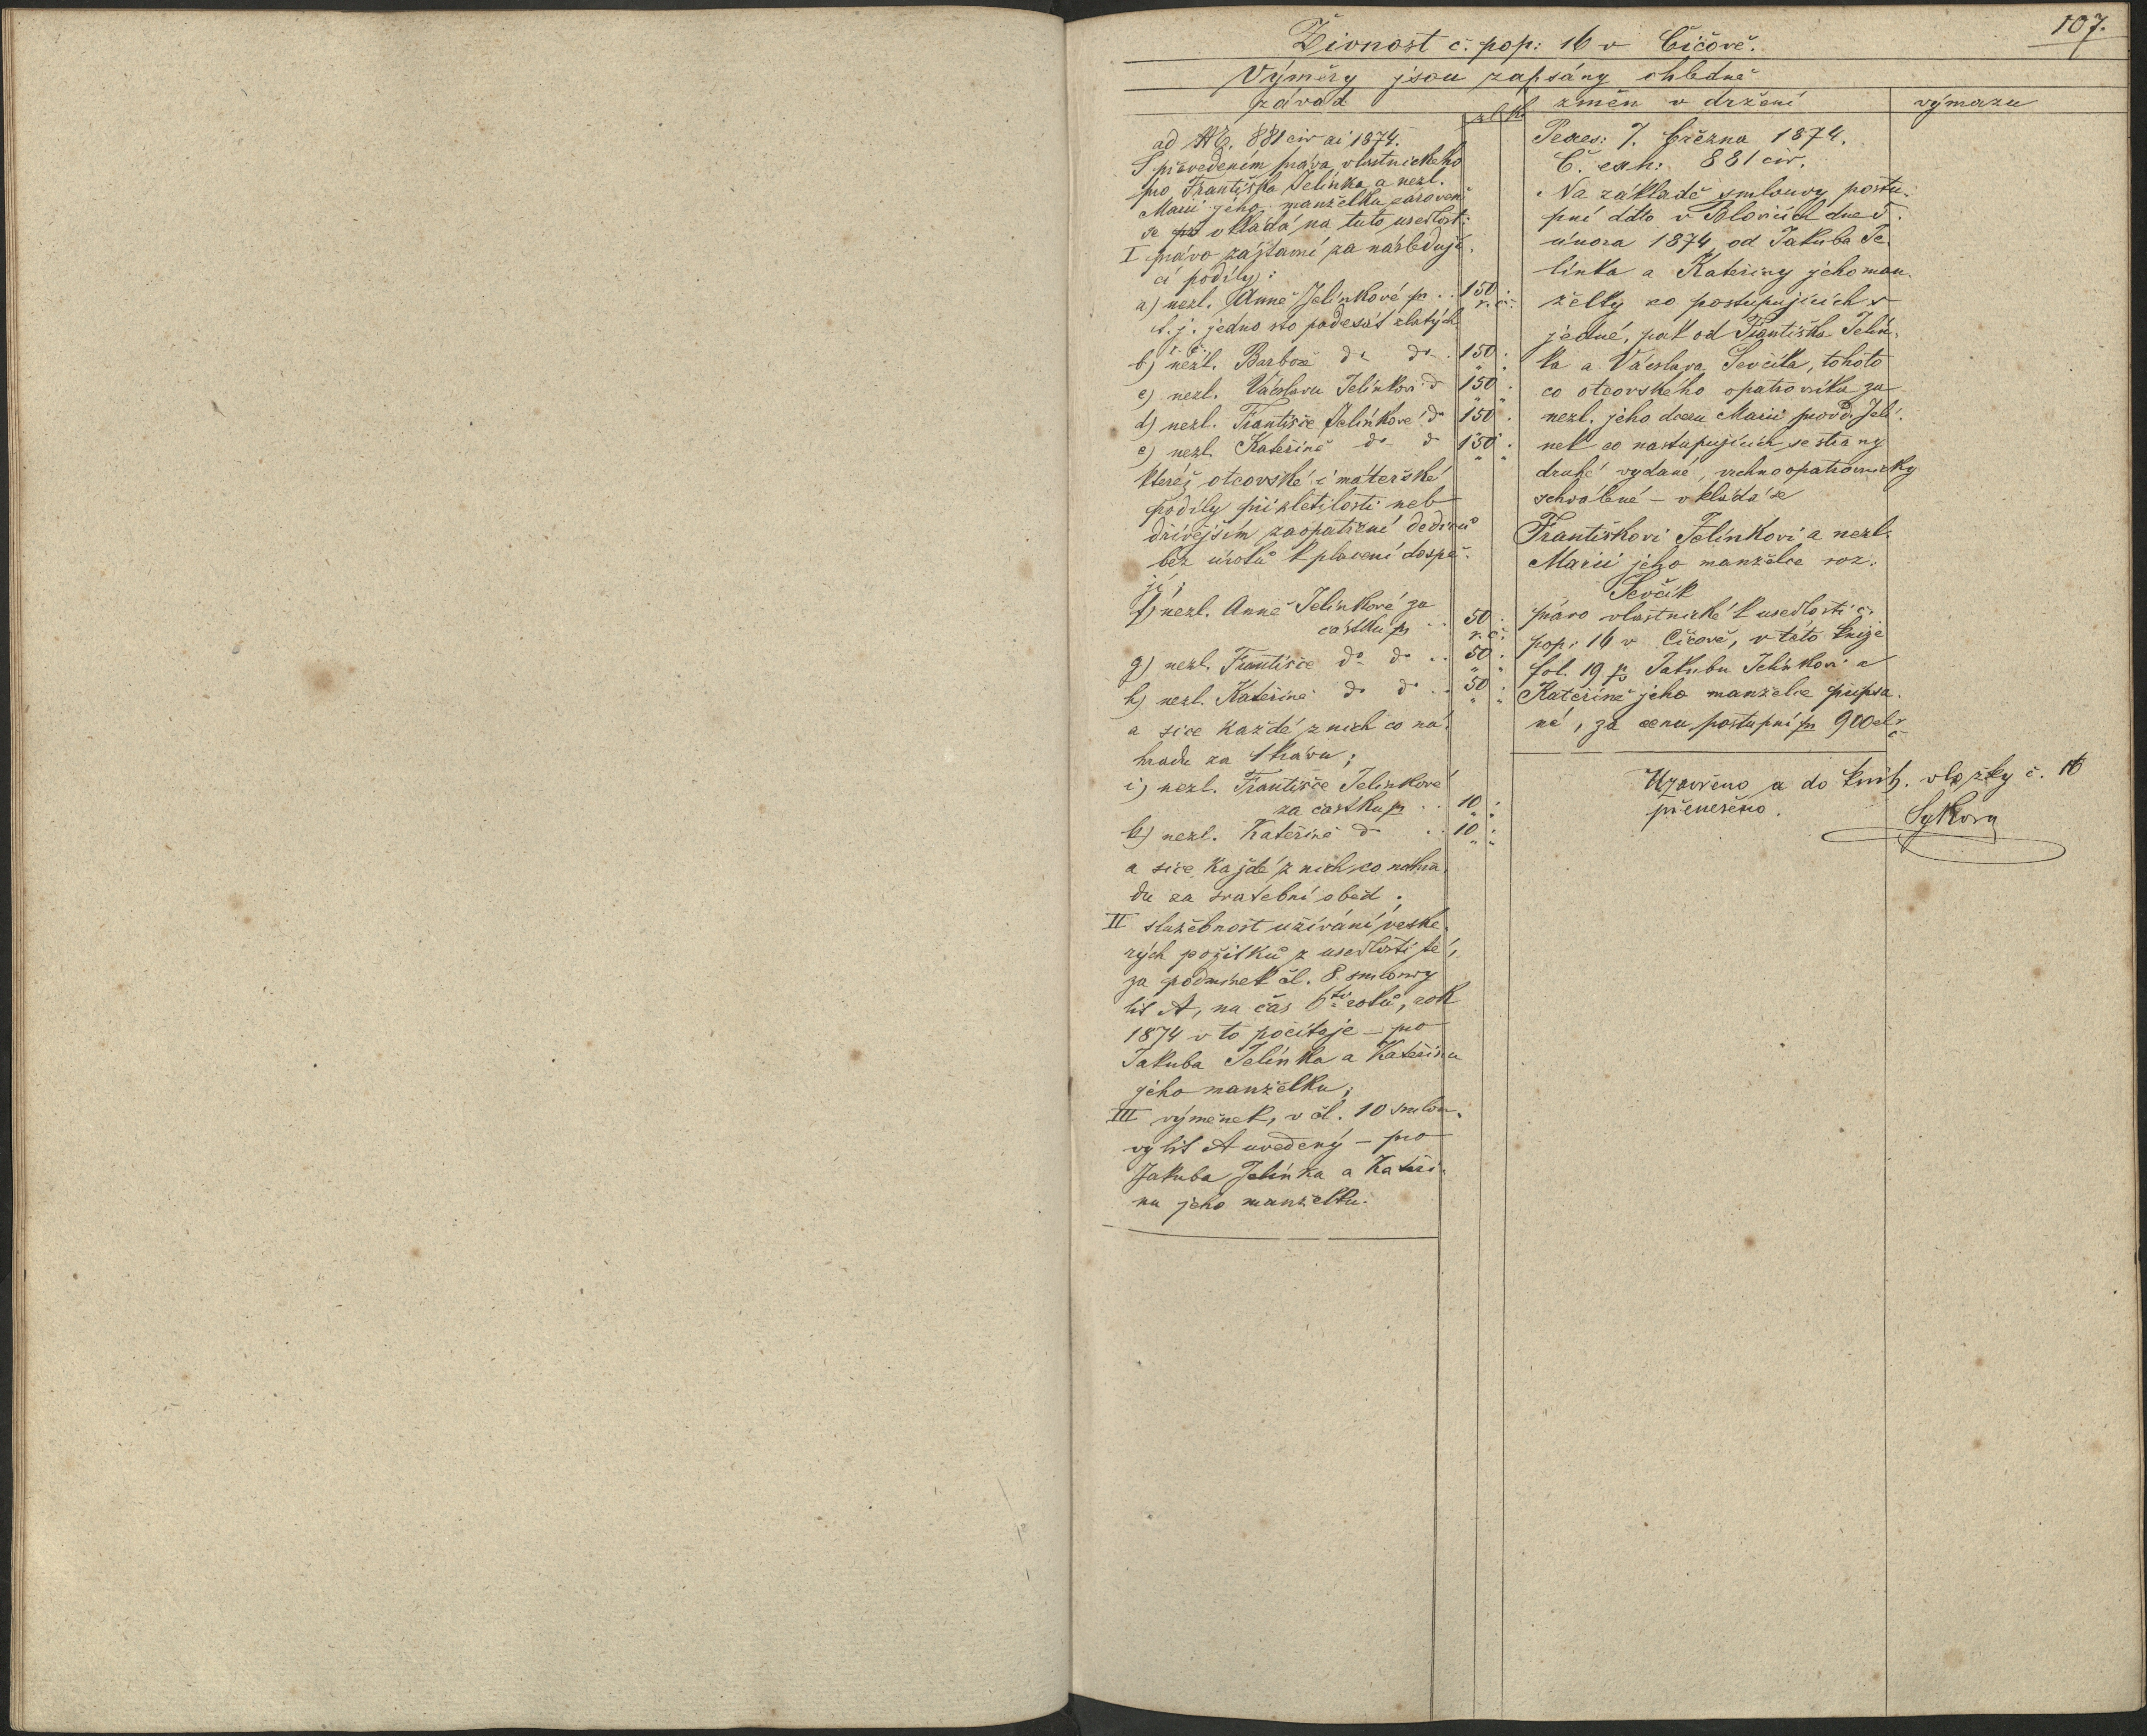 107.
Živnost č. pop: 16 v Číčově.
Výměry jsou zapsány ohledně
závad
zl. kr.
změn v držení
výmazu
ad NE. 881 civ ai 1874.
S převedením práva vlastnického
pro Františka Jelínka a nezl.
Marii jeho manželku zároveň
se vkládá na tuto usedlost:
I právo zástavní za následují-
cí podíly:
a) nezl. Anně Jelínkové pr .. 150
r. č.
t. j. jedno sto padesát zlatých
r. č.
b) nezl. Barboře do do . 150 .
c) nezl. Václavu Jelínkovi do 150 .
d) nezl. Františce Jelínkové do 150 .
e) nezl. Kateřině do do 150 .
kteréž otcovské i mateřské
podíly při zletilosti neb
dřívějším zaopatření dědiců
bez úroků k placení dospě-
jí;
f) nezl. Anně Jelínkové za
částku pr .. 50 .
r. č.
g) nezl. Františce do do .. 50 .
h) nezl. Kateřině do do .. 50 .
a sice každé z nich co ná-
hradu za 1 krávu;
i) nezl. Františce Jelínkové
za částku pr .. 10 .
k) nezl. Kateřině do .. 10 .
a sice každé z nich co náhra-
du za svatební oběd;
II služebnost užívání veške-
rých požitků z usedlosti té,
za podmínek čl. 8. smlouvy
lit A, na čas 6ti roků, rok
1874 v to počítaje – pro
Jakuba Jelínka a Kateřinu
jeho manželku;
III výměnek, v čl. 10 smlou-
vy lit A uvedený – pro
Jakuba Jelínka a Kateři-
nu jeho manželku.
Praes: 7. března 1874.
Č. exh: 881 civ.
Na základě smlouvy postu-
pní ddto v Blovicích dne 5.
února 1874, od Jakuba Je-
línka a Kateřiny jeho man-
želky co postupujících s
jedné, pak od Františka Jelín-
ka a Václava Ševčíka, tohoto
co otcovského opatrovníka za
nezl. jeho dceru Marii provd. Jelí-
nek co nastupujících se strany
druhé vydané, vrchnoopatrovnicky
schválené – vkládá se
Františkovi Jelínkovi a nezl.
Marii jeho manželce roz.
Ševčík
právo vlastnické k usedlosti č.
pop: 16 v Číčově, v této knize
fol. 19 pr Jakubu Jelínkovi a
Kateřině jeho manželce připsa-
né, za cenu postupní pr 900 zl r č
Uzavřeno a do knih. vložky č. 16
přeneseno.
Sýkora